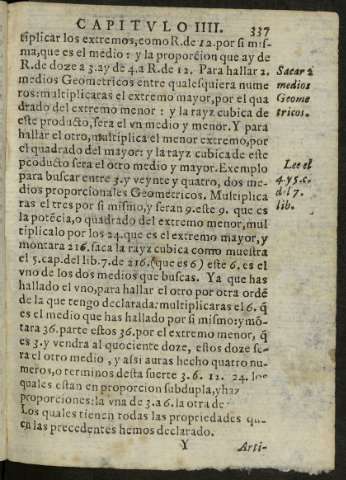 CAPITVLO IIII. 337
tiplicar los extremos, como R. de 12. por si mis-
ma, que es el medio: y la proporcion que ay de
R. de doze a 3. ay de 4. a R. de 12. Para hallar 2.
medios Geometricos entre qualesquiera nume
ros: multiplicaras el extremo mayor, por el qua
drado del extremo menor: y la rayz cubica de
este producto, sera el vn medio y menor. Y para
hallar el otro, multiplica el menor extremo, por
el quadrado del mayor: y la rayz cubica de este
producto sera el otro medio y mayor. Exemplo
para buscar entre 3. y veynte y quatro, dos me-
dios proporcionales Geometricos. Multiplica
ras el tres por si mismo, y seran 9. este 9. que es
la potẽcia, o quadrado del extremo menor, mul
tiplicalo por los 24. que es el extremo mayor, y
montara 216. saca la rayz cubica como muestra
el 5. cap. del lib. 7. de 216. (que es 6) este 6. es el
vno de los dos medios que buscas. Ya que has
hallado el vno, para hallar el otro por otra ordẽ
de la que tengo declarada: multiplicaras el 6. q̃
es el medio que has hallado por si mismo: y mõ-
tara 36. parte estos 36. por el extremo menor, q̃
es 3. y vendra al quociente doze, estos doze se-
ra el otro medio, y assi auras hecho quatro nu-
meros, o terminos desta suerte 3. 6. 12. 24. los
quales estan en proporcion subdupla, y haz
proporciones: la vna de 3. a 6. la otra de
Los quales tienen todas las propriedades qu-
en las precedentes hemos declarado.
Y Arti-
Sacar 2
medios
Geome
tricos.
Lee el
4. y 5. c.
d̃l 7.
lib.